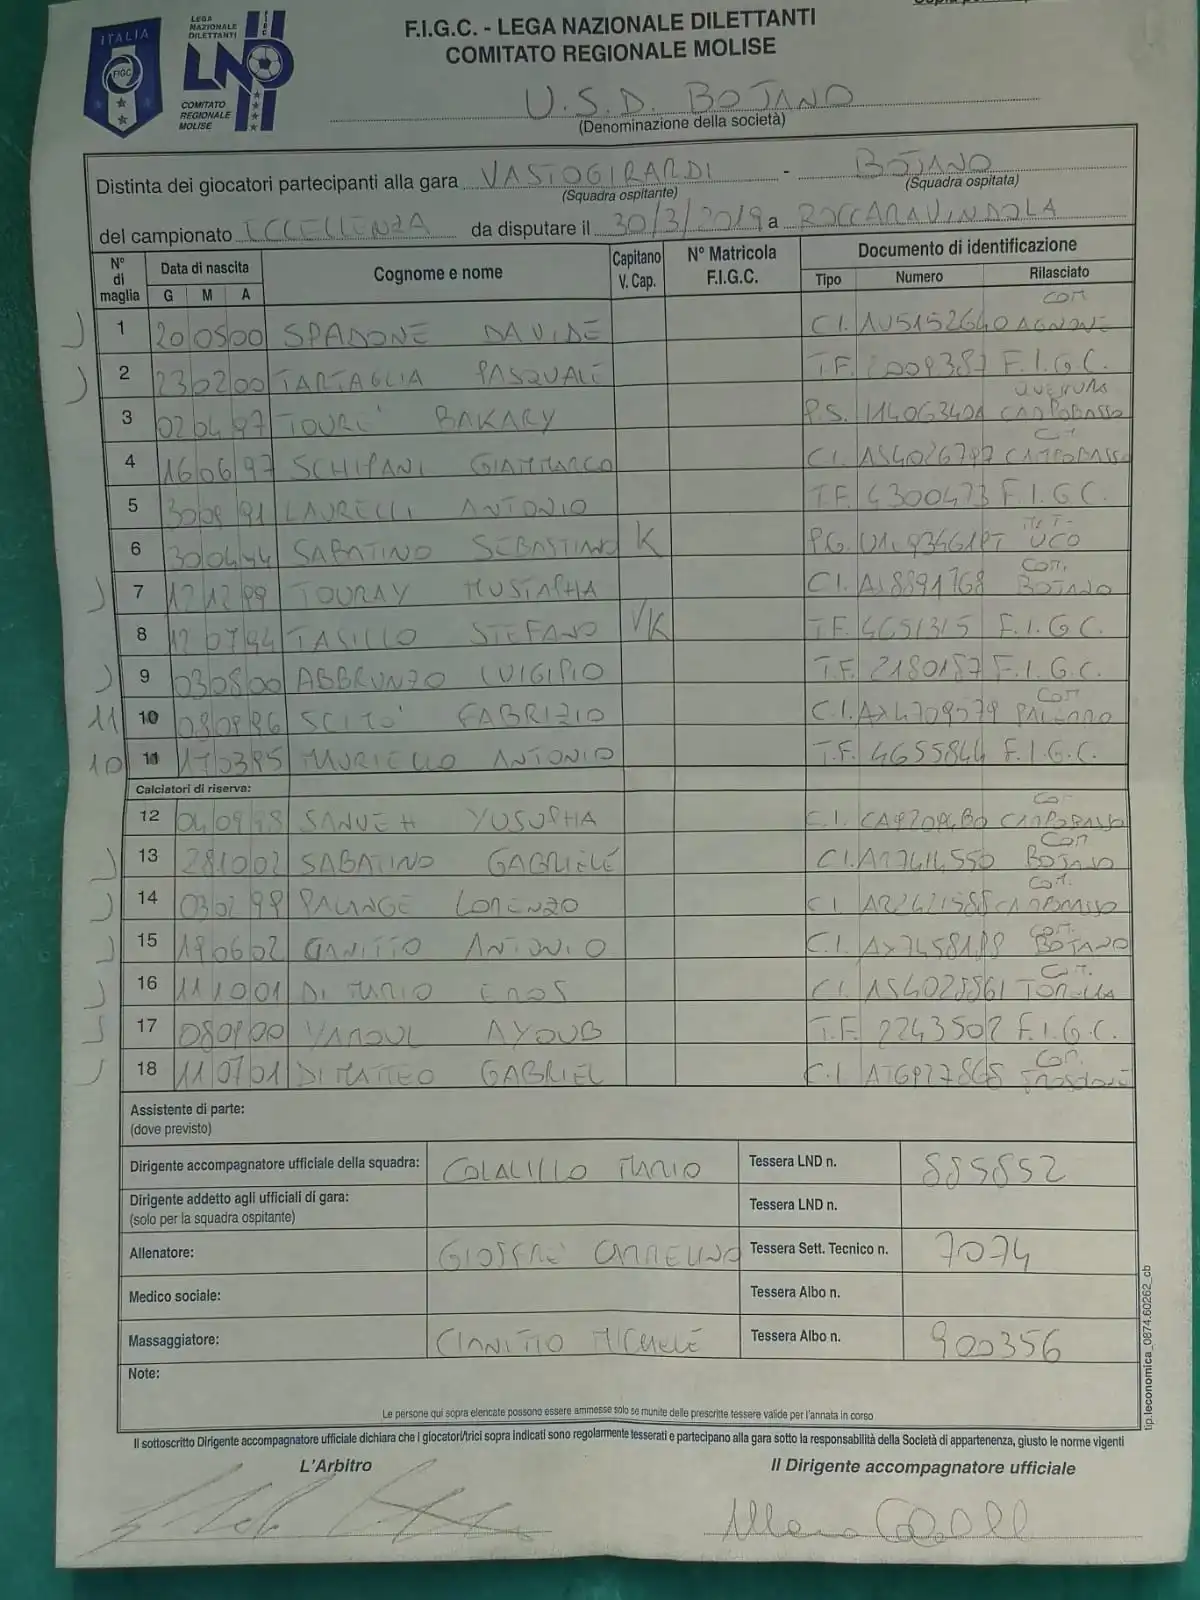 ITALIA
FIGC
LEGA
NAZIONALE
DILETTANTI
LND
COMITATO
REGIONALE
MOLISE
F.I.G.C. - LEGA NAZIONALE DILETTANTI
COMITATO REGIONALE MOLISE
U.S.D. BOJANO
(Denominazione della società)
Distinta dei giocatori partecipanti alla gara VASTOGIRARDI - BOJANO
(Squadra ospitante) (Squadra ospitata)
del campionato ECCELLENZA da disputare il 30/3/2019 a ROCCARAVINDOLA
N° di maglia Data di nascita G M A Cognome e nome Capitano V. Cap. N° Matricola F.I.G.C. Documento di identificazione Tipo Numero Rilasciato
1 20 05 00 SPADONE DAVIDE C.I. AU5152640 COM AGNONE
2 23 02 00 TARTAGLIA PASQUALE T.F. 2009387 F.I.G.C.
3 02 04 97 TOURE' BAKARY P.S. CAMPOBASSO
4 16 06 97 SCHIPANI GIANMARCO C.I. CAMPOBASSO
5 91 LAURELLI ANTONIO T.F. 4300473 F.I.G.C.
6 30 04 SABATINO SEBASTIANO K P.G. UCO
7 12 12 99 TOURAY MUSTAPHA C.I. COM. BOJANO
8 12 07 94 TASILLO STEFANO VK T.F. 4651315 F.I.G.C.
9 03 08 00 ABBRUNZO LUIGIPIO T.F. 2180187 F.I.G.C.
11 10 SCITO' FABRIZIO C.I. COM
10 11 17 03 95 MURIELLO ANTONIO T.F. 4655844 F.I.G.C.
Calciatori di riserva:
12 04 09 98 SANNEH YUSUPHA C.I. CAMPOBASSO
13 28 10 02 SABATINO GABRIELE C.I. COM BOJANO
14 03 02 99 PALANGE LORENZO C.I. COM. CAMPOBASSO
15 19 06 02 ANTONIO C.I. COM. BOJANO
16 11 10 01 DI MARIO EROS C.I. TORELLA
17 00 YAROUL AYOUB T.F. 2243502 F.I.G.C.
18 11 07 01 DI MATTEO GABRIEL C.I. COM.
Assistente di parte:
(dove previsto)
Dirigente accompagnatore ufficiale della squadra: COLALILLO MARIO Tessera LND n. 885852
Dirigente addetto agli ufficiali di gara:
(solo per la squadra ospitante) Tessera LND n.
Allenatore: GIOFFRE' CARMELINO Tessera Sett. Tecnico n. 7074
Medico sociale: Tessera Albo n.
Massaggiatore: MICHELE Tessera Albo n. 900356
Note:
Le persone qui sopra elencate possono essere ammesse solo se munite delle prescritte tessere valide per l'annata in corso
tip.leconomica_0874.60262_cb
Il sottoscritto Dirigente accompagnatore ufficiale dichiara che i giocatori/trici sopra indicati sono regolarmente tesserati e partecipano alla gara sotto la responsabilità della Società di appartenenza, giusto le norme vigenti
L'Arbitro Il Dirigente accompagnatore ufficiale